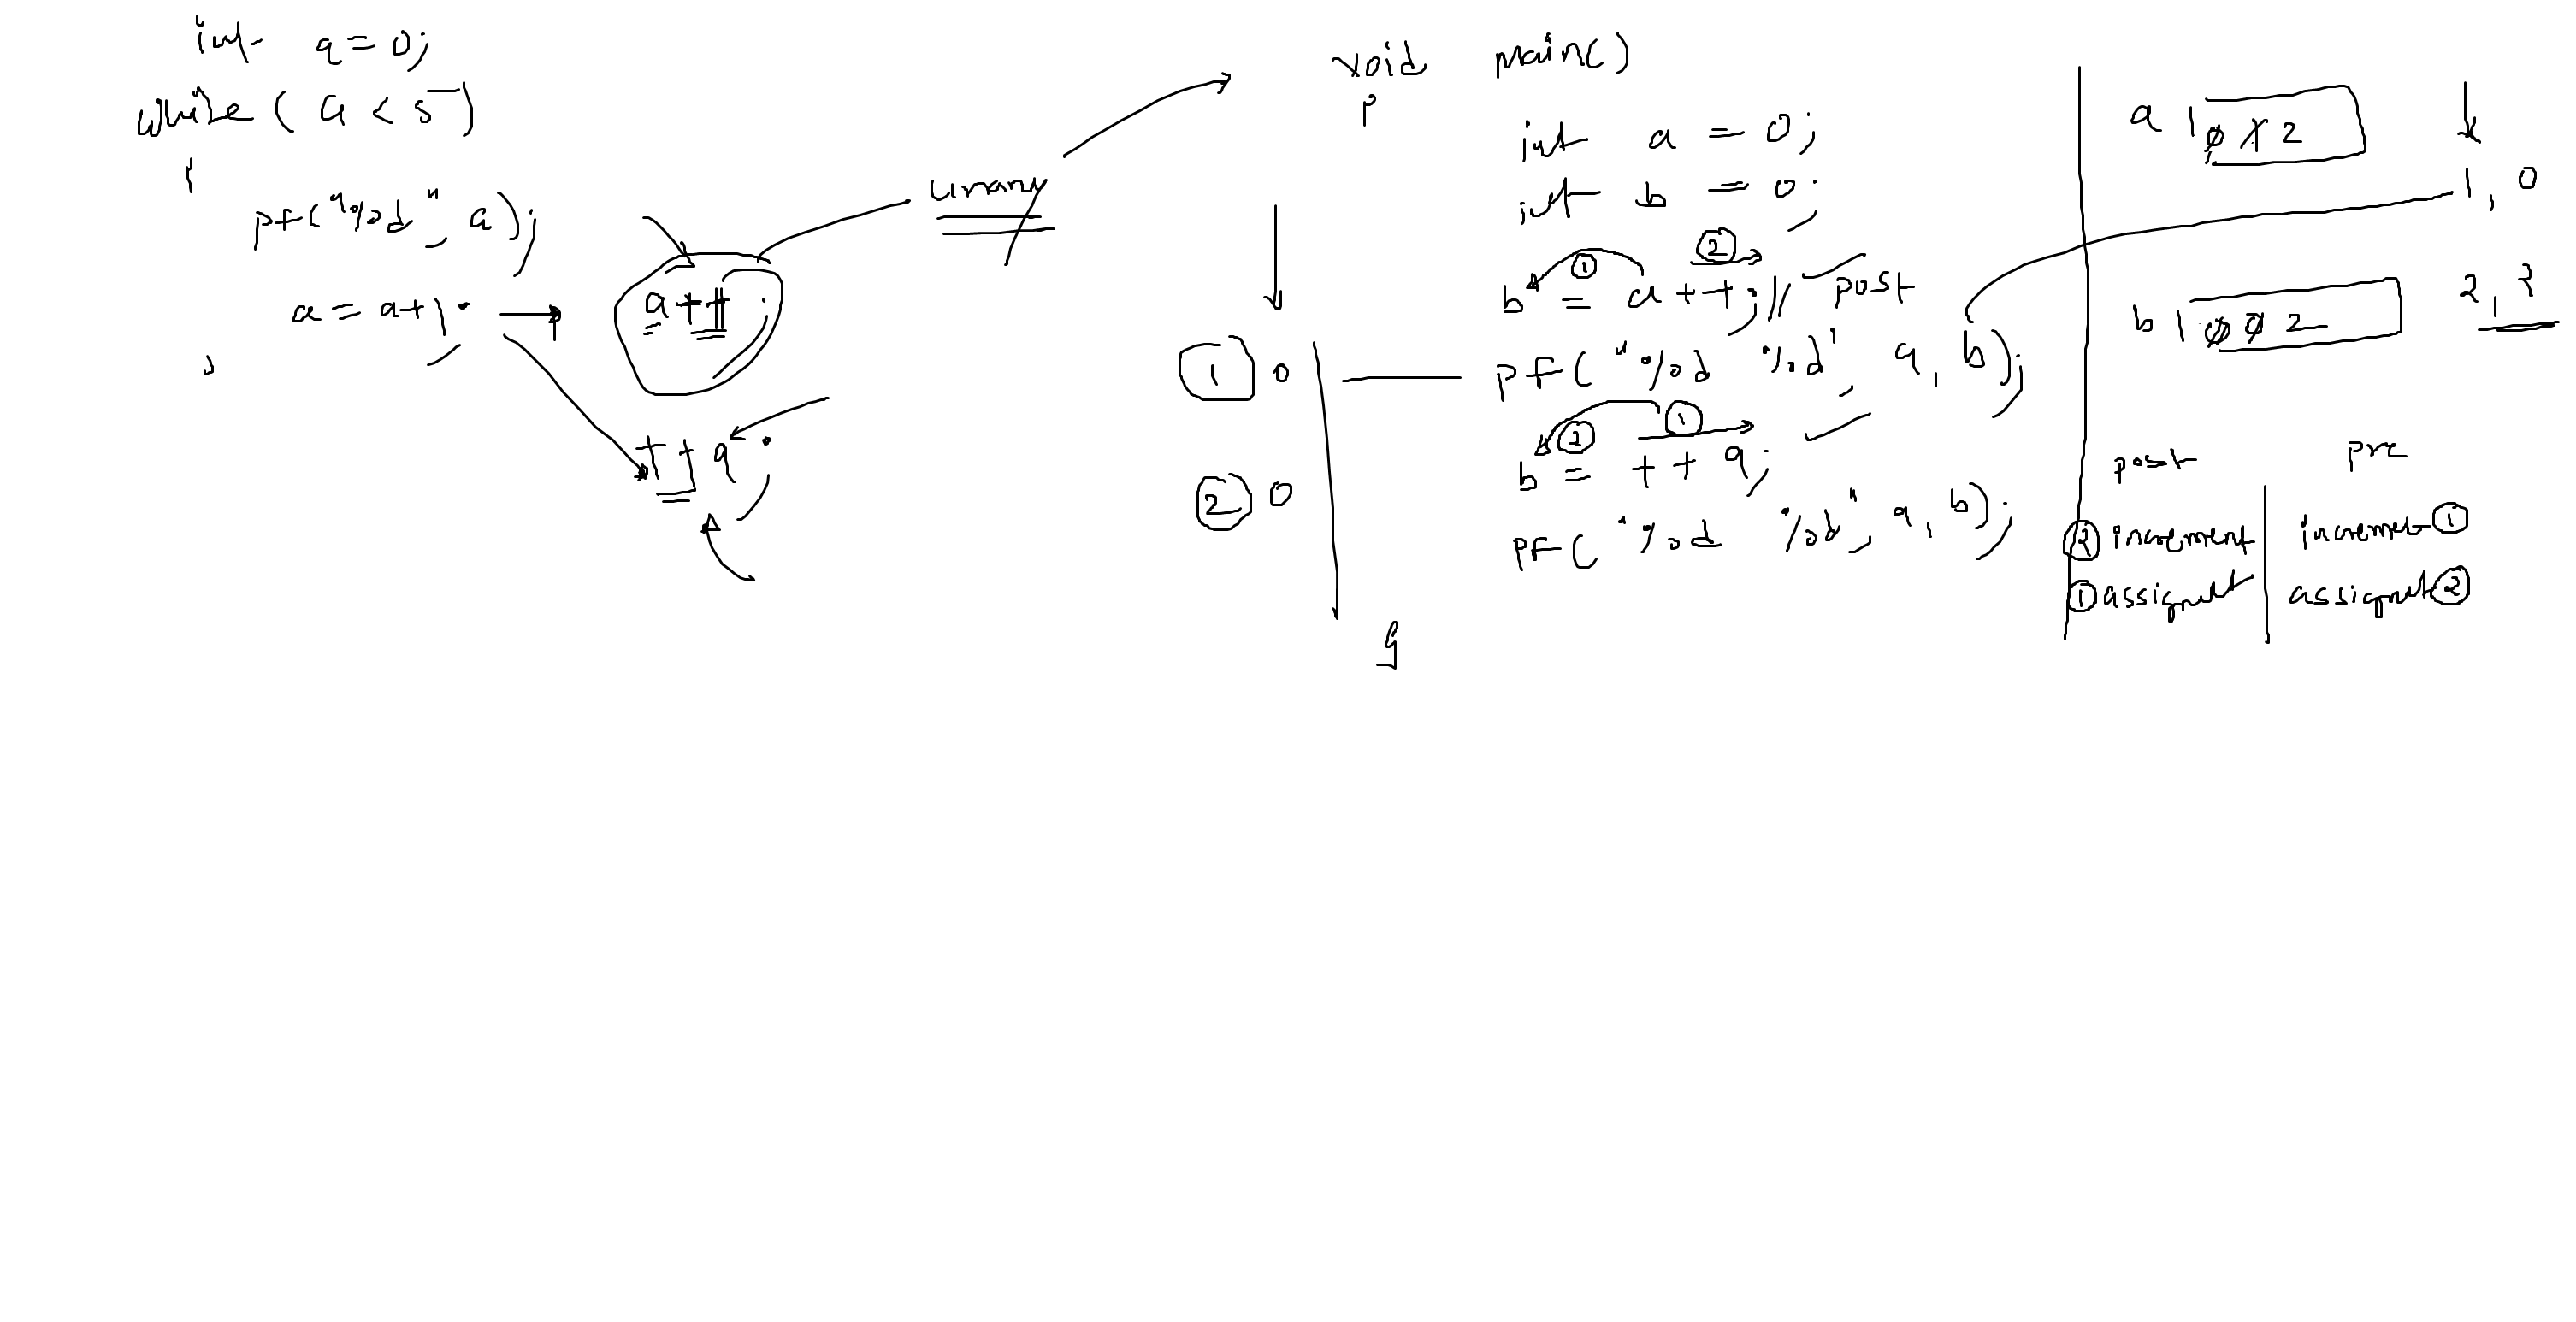 int a=0;
while ( a < 5 )
{
pf("%d", a);
a = a+1;
}
a++;
++a;
unary
void main()
{
int a = 0;
int b = 0;
① ②
b = a++; // post
pf( "%d %d", a, b);
② ①
b = ++a;
pf( "%d %d", a, b);
}
1 0
2 0
a 0 1 2
1, 0
b 0 0 2
2, 2
post pre
② increment increment ①
① assignment assignment ②